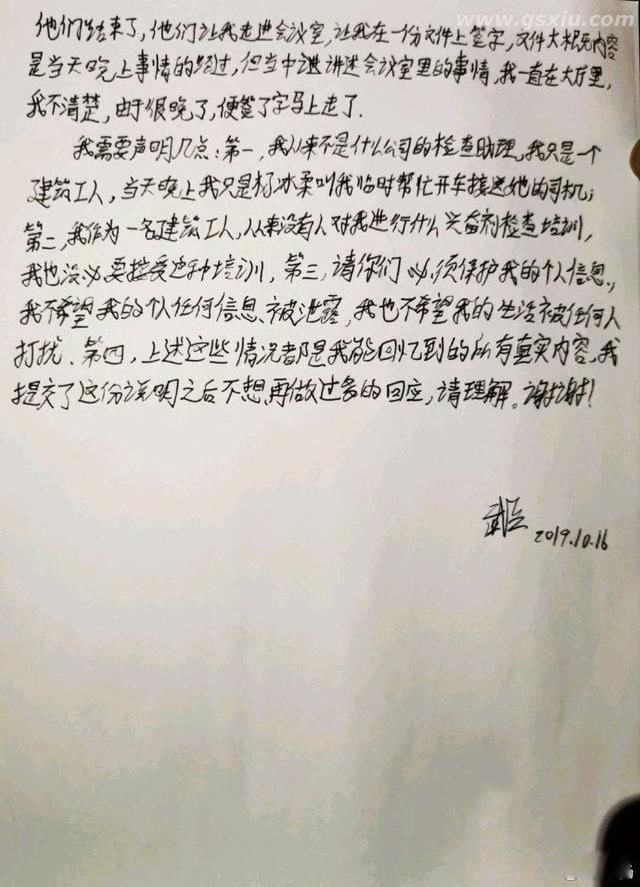 www.qsxiu.com
他们结束了,他们让我走进会议室,让我在一份文件上签字,文件大概内容
是当天晚上事情的经过,但当中进讲述会议室里的事情,我一直在大厅里,
我不清楚,由于很晚了,便签了字马上走了.
我需要声明几点:第一,我从来不是什么公司的检查助理,我只是一个
建筑工人,当天晚上我只是杨冰柔叫我临时帮忙开车接送她的司机;
第二,我作为一名建筑工人,从来没有人对我进行什么兴奋剂检查培训,
我也没必要接受这种培训,第三,请你们必须保护我的个人信息,
我不希望我的个人任何信息被泄露,我也不希望我的生活被任何人
打扰.第四,上述这些情况都是我能回忆到的所有真实内容,我
提交了这份说明之后不想再做过多的回应,请理解。谢谢!
2019.10.16